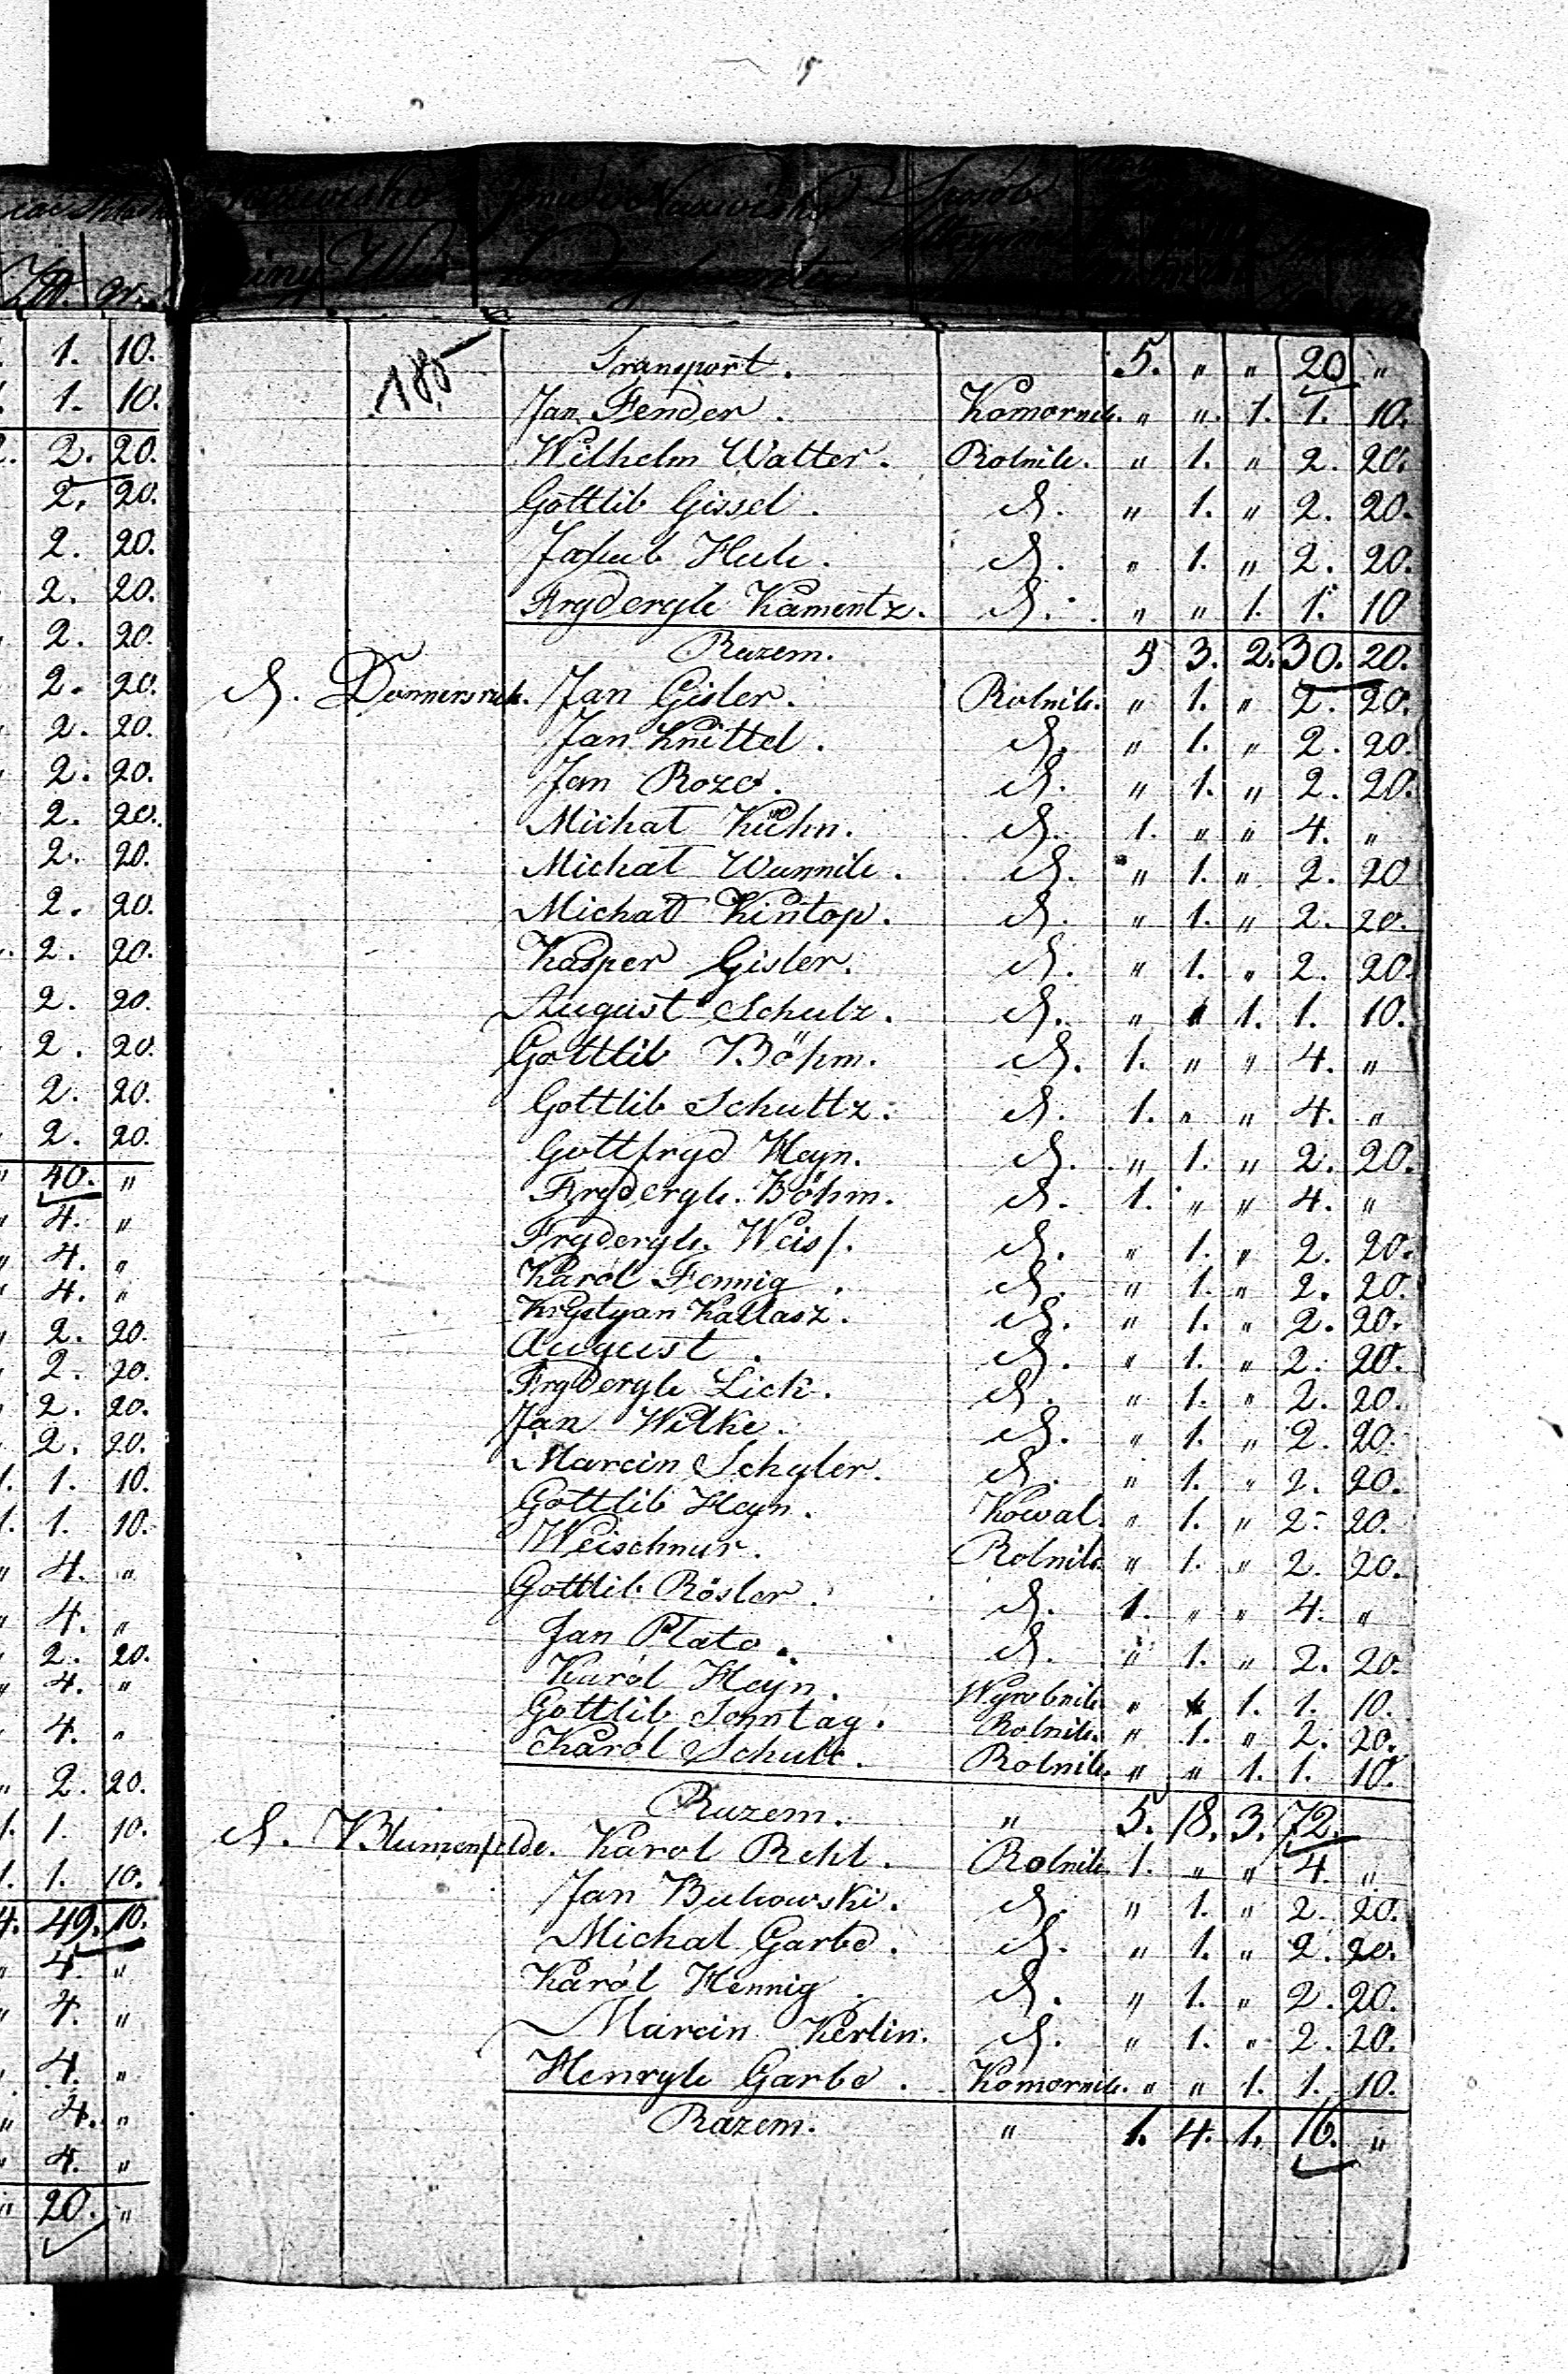 Zł. gr.
1. 10.
1. 10.
2. 2. 20.
2. 20.
2. 20.
2. 20.
2. 20.
2. 20.
2. 20.
2. 20.
2. 20.
2. 20.
2. 20.
2. 20.
2. 20.
2. 20.
2. 20.
2. 20.
" 40. "
4. "
4. "
4. "
2. 20.
2. 20.
2. 20.
2. 20.
1. 1. 10.
1. 1. 10.
" 4. "
4. "
2. 20.
4. "
4. "
2. 20.
1. 1. 10.
1. 1. 10.
4. 49. 10.
4. "
4. "
4. "
4. "
4. "
" 20. "
185
Transport. 5. " " 20 "
Jan Fender. Komornik. " " 1. 1. 10.
Wilhelm Walter. Rolnik. " 1. " 2. 20.
Gottlib Gissel. d. " 1. " 2. 20.
Jakub Huk. d. " 1. " 2. 20.
Fryderyk Kamentz. d. " " 1. 1. 10
Razem. 5 3. 2. 30. 20.
d. Donnersruh. Jan Gisler. Rolnik. " 1. " 2. 20.
Jan Knittel. d. " 1. " 2. 20.
Jan Roze. d. " 1. " 2. 20.
Michał Kühn. d. 1. " " 4. "
Michał Wannik. d. " 1. " 2. 20
Michał Kintop. d. " 1. " 2. 20.
Kasper Gisler. d. " 1. " 2. 20.
August Schulz. d. " " 1. 1. 10.
Gottlib Böhm. d. 1. " " 4. "
Gottlib Schultz. d. 1. " " 4. "
Gottfryd Heyn. d. " 1. " 2. 20.
Fryderyk Böhm. d. 1. " " 4. "
Fryderyk Weiss. d. " 1. " 2. 20.
Karól Fennig. d. " 1. " 2. 20.
Krystyan Kallasz. d. " 1. " 2. 20.
August. d. " 1. " 2. 20.
Fryderyk Lick. d. " 1. " 2. 20.
Jan Wilke. d. " 1. " 2. 20.
Marcin Schyler. d. " 1. " 2. 20.
Gottlib Heyn. Kowal. " 1. " 2. 20.
Weischnur. Rolnik. " 1. " 2. 20.
Gottlib Rösler. d. 1. " " 4. "
Jan Plato. d. " 1. " 2. 20.
Karól Heyn. Wyrobnik. " " 1. 1. 10.
Gottlib Sonntag. Rolnik. " 1. " 2. 20.
Karól Schulc. Rolnik. " " 1. 1. 10.
Razem. " 5. 18. 3. 72.
d. Blumenfelde. Karol Rehl. Rolnik. 1. " " 4. "
Jan Bukowski. d. " 1. " 2. 20.
Michał Garbe. d. " 1. " 2. 20.
Karól Hennig. d. " 1. " 2. 20.
Marcin Kerlin. d. " 1. " 2. 20.
Henryk Garbe. Komornik. " " 1. 1. 10.
Razem. " 1. 4. 1. 16. "